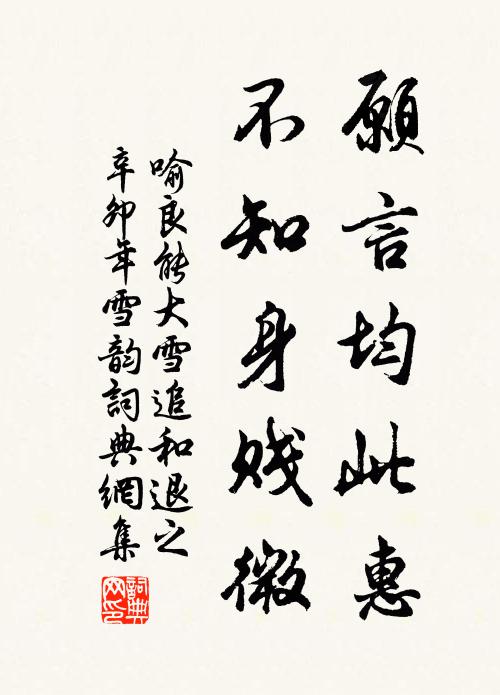 願言均此惠
不知身賤微
喻良能大雪追和退之
辛卯年雪韵詞典網集
詞典
网印